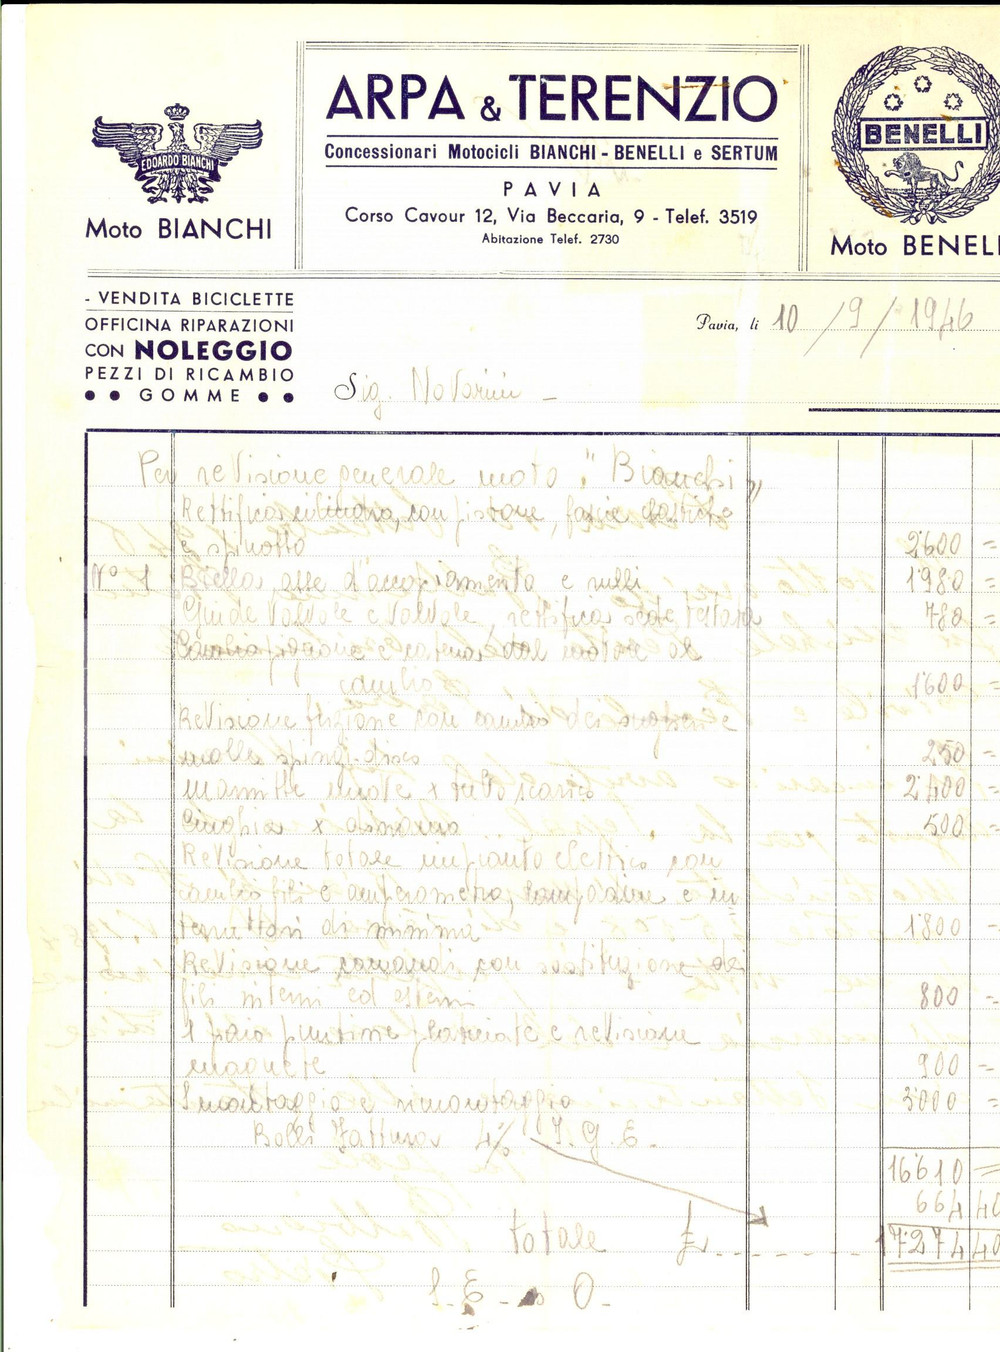 EDOARDO BIANCHI
Moto BIANCHI
ARPA & TERENZIO
Concessionari Motocicli BIANCHI - BENELLI e SERTUM
PAVIA
Corso Cavour 12, Via Beccaria, 9 - Telef. 3519
Abitazione Telef. 2730
BENELLI
Moto BENELL
- VENDITA BICICLETTE
OFFICINA RIPARAZIONI
CON NOLEGGIO
PEZZI DI RICAMBIO
• • GOMME • •
Pavia, li 10 / 9 / 1946
Sig. Novarini -
Per revisione generale moto "Bianchi"
Rettifica cilindro, con pistone, fascie elastiche
e spinotto 2'600 =
N° 1 Biella, asse d'accoppiamento e rulli 1'980 =
Guide valvole e valvole, rettifica sede testata 780 =
Cambio pignone e catena dal motore al
cambio 1'600 =
Revisione frizione con cambio dei sugheri e
molle spingi-disco 250 =
Marmitte nuove x tubo scarico 2'400 =
Cinghia x dinamo 500 =
Revisione totale impianto elettrico con
cambio fili e amperometro, lampadine e in=
terruttori di minima 1'800 =
Revisione comandi con sostituzione dei
fili interni ed esterni 800 =
1 paio puntine platinate e revisione
magnete 900 =
Smontaggio e rimontaggio 3'000 =
16'610 =
Bolli Fattura 4% I.G.E. 664 40
totale £. 17'274 40
S. E. O.